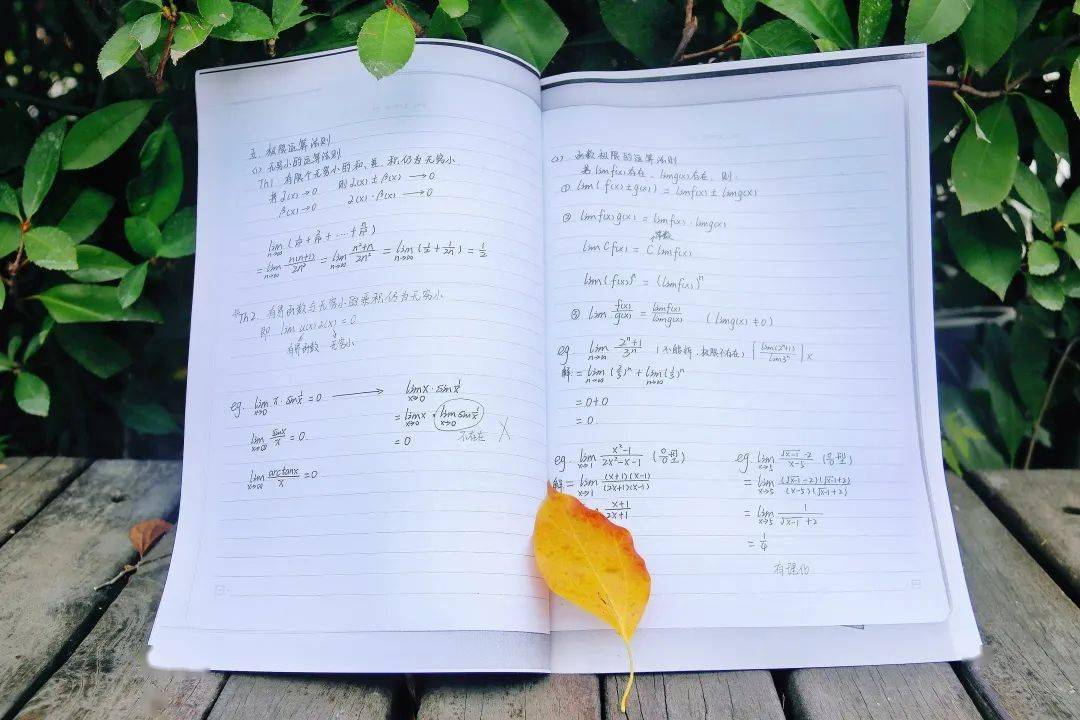 五. 极限运算法则
(1) 无穷小的运算法则
Th1. 有限个无穷小的和、差、积仍为无穷小.
若 α(x)→0 则 α(x)±β(x)→0
β(x)→0 α(x)·β(x)→0
lim n→∞ (1/n² + 2/n² + ... + n/n²)
= lim n→∞ n(n+1)/2n² = lim n→∞ (n²+n)/2n² = lim n→∞ (1/2 + 1/2n) = 1/2
※Th2. 有界函数与无穷小的乘积仍为无穷小
即 lim u(x)α(x) = 0
有界函数 无穷小
eg. lim x→0 x·sin 1/x = 0 → lim x→0 x·sin 1/x
= lim x→0 x · lim x→0 sin 1/x
不存在 X
lim x→∞ sinx/x = 0. = 0
lim x→∞ arctanx/x = 0
(2) 函数极限的运算法则
若 limf(x)存在, limg(x)存在, 则.
① lim(f(x)±g(x)) = limf(x) ± limg(x)
② limf(x)g(x) = limf(x)·limg(x)
常数
lim C f(x) = C limf(x)
lim(f(x))ⁿ = (limf(x))ⁿ
③ lim f(x)/g(x) = limf(x)/limg(x) (limg(x)≠0)
eg. lim n→∞ (2ⁿ+1)/3ⁿ (不能拆, 极限不存在) [lim(2ⁿ+1)/lim3ⁿ] X
解 = lim n→∞ (2/3)ⁿ + lim n→∞ (1/3)ⁿ
= 0+0
= 0.
eg. lim x→1 (x²-1)/(2x²-x-1) (0/0型)
解 = lim x→1 (x+1)(x-1)/(2x+1)(x-1)
(x+1)/(2x+1)
eg. lim x→5 (√x-1 -2)/(x-5) (0/0型)
= lim x→5 (√x-1 -2)(√x-1 +2)/(x-5)(√x-1 +2)
= lim x→5 1/(√x-1 +2)
= 1/4
有理化